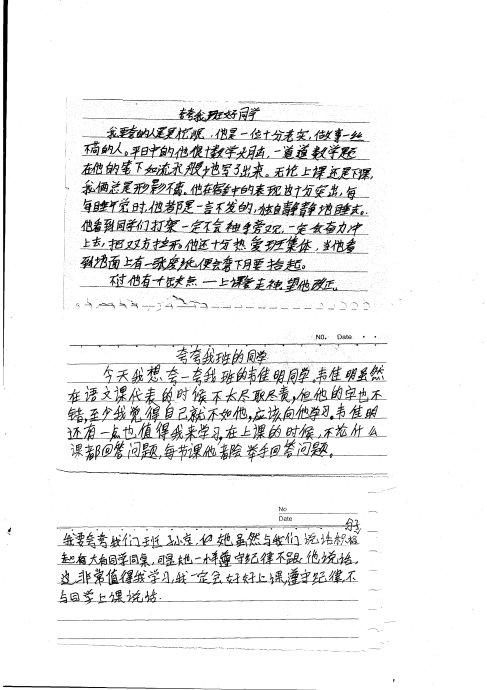 夸夸我班好同学
我要夸的人是是忙昵，他是一位十分老实，做事一丝
不苟的人。平日中的他像十数学天月去，一道道数学题
在他的笔下如流水般地写了出来。无论上课还是下课，
我俩总是形影不离。他在宿舍中的表现也十分突出，每
每睡午觉时，他都是一言不发的，独自静静地睡去。
他看到同学们打架一定不会袖手旁观，一定会奋力冲
上去，把双方拉开。他还十分热爱班集体，当他看
到地面上有一张废纸便会弯下月要拾起。
不过他有个缺点——上课会走神，望他改正。
No. Date
夸夸我班的同学
今天我想夸一夸我班的韦佳明同学，韦佳明虽然
在语文课代表的时候不太尽职尽责，但他的字也不
错，至少我觉得自己就不如他，应该向他学习。韦佳明
还有一点也值得我来学习，在上课的时候，不论什么
课都回答问题，每节课他都会举手回答问题。
No
Date
我要夸夸我们班 她虽然与我们说话
同桌，可是她一样遵守纪律不跟他说话，
这非常值得我学习，我一定会好好上课，遵守纪律，不
与同学上课说话。